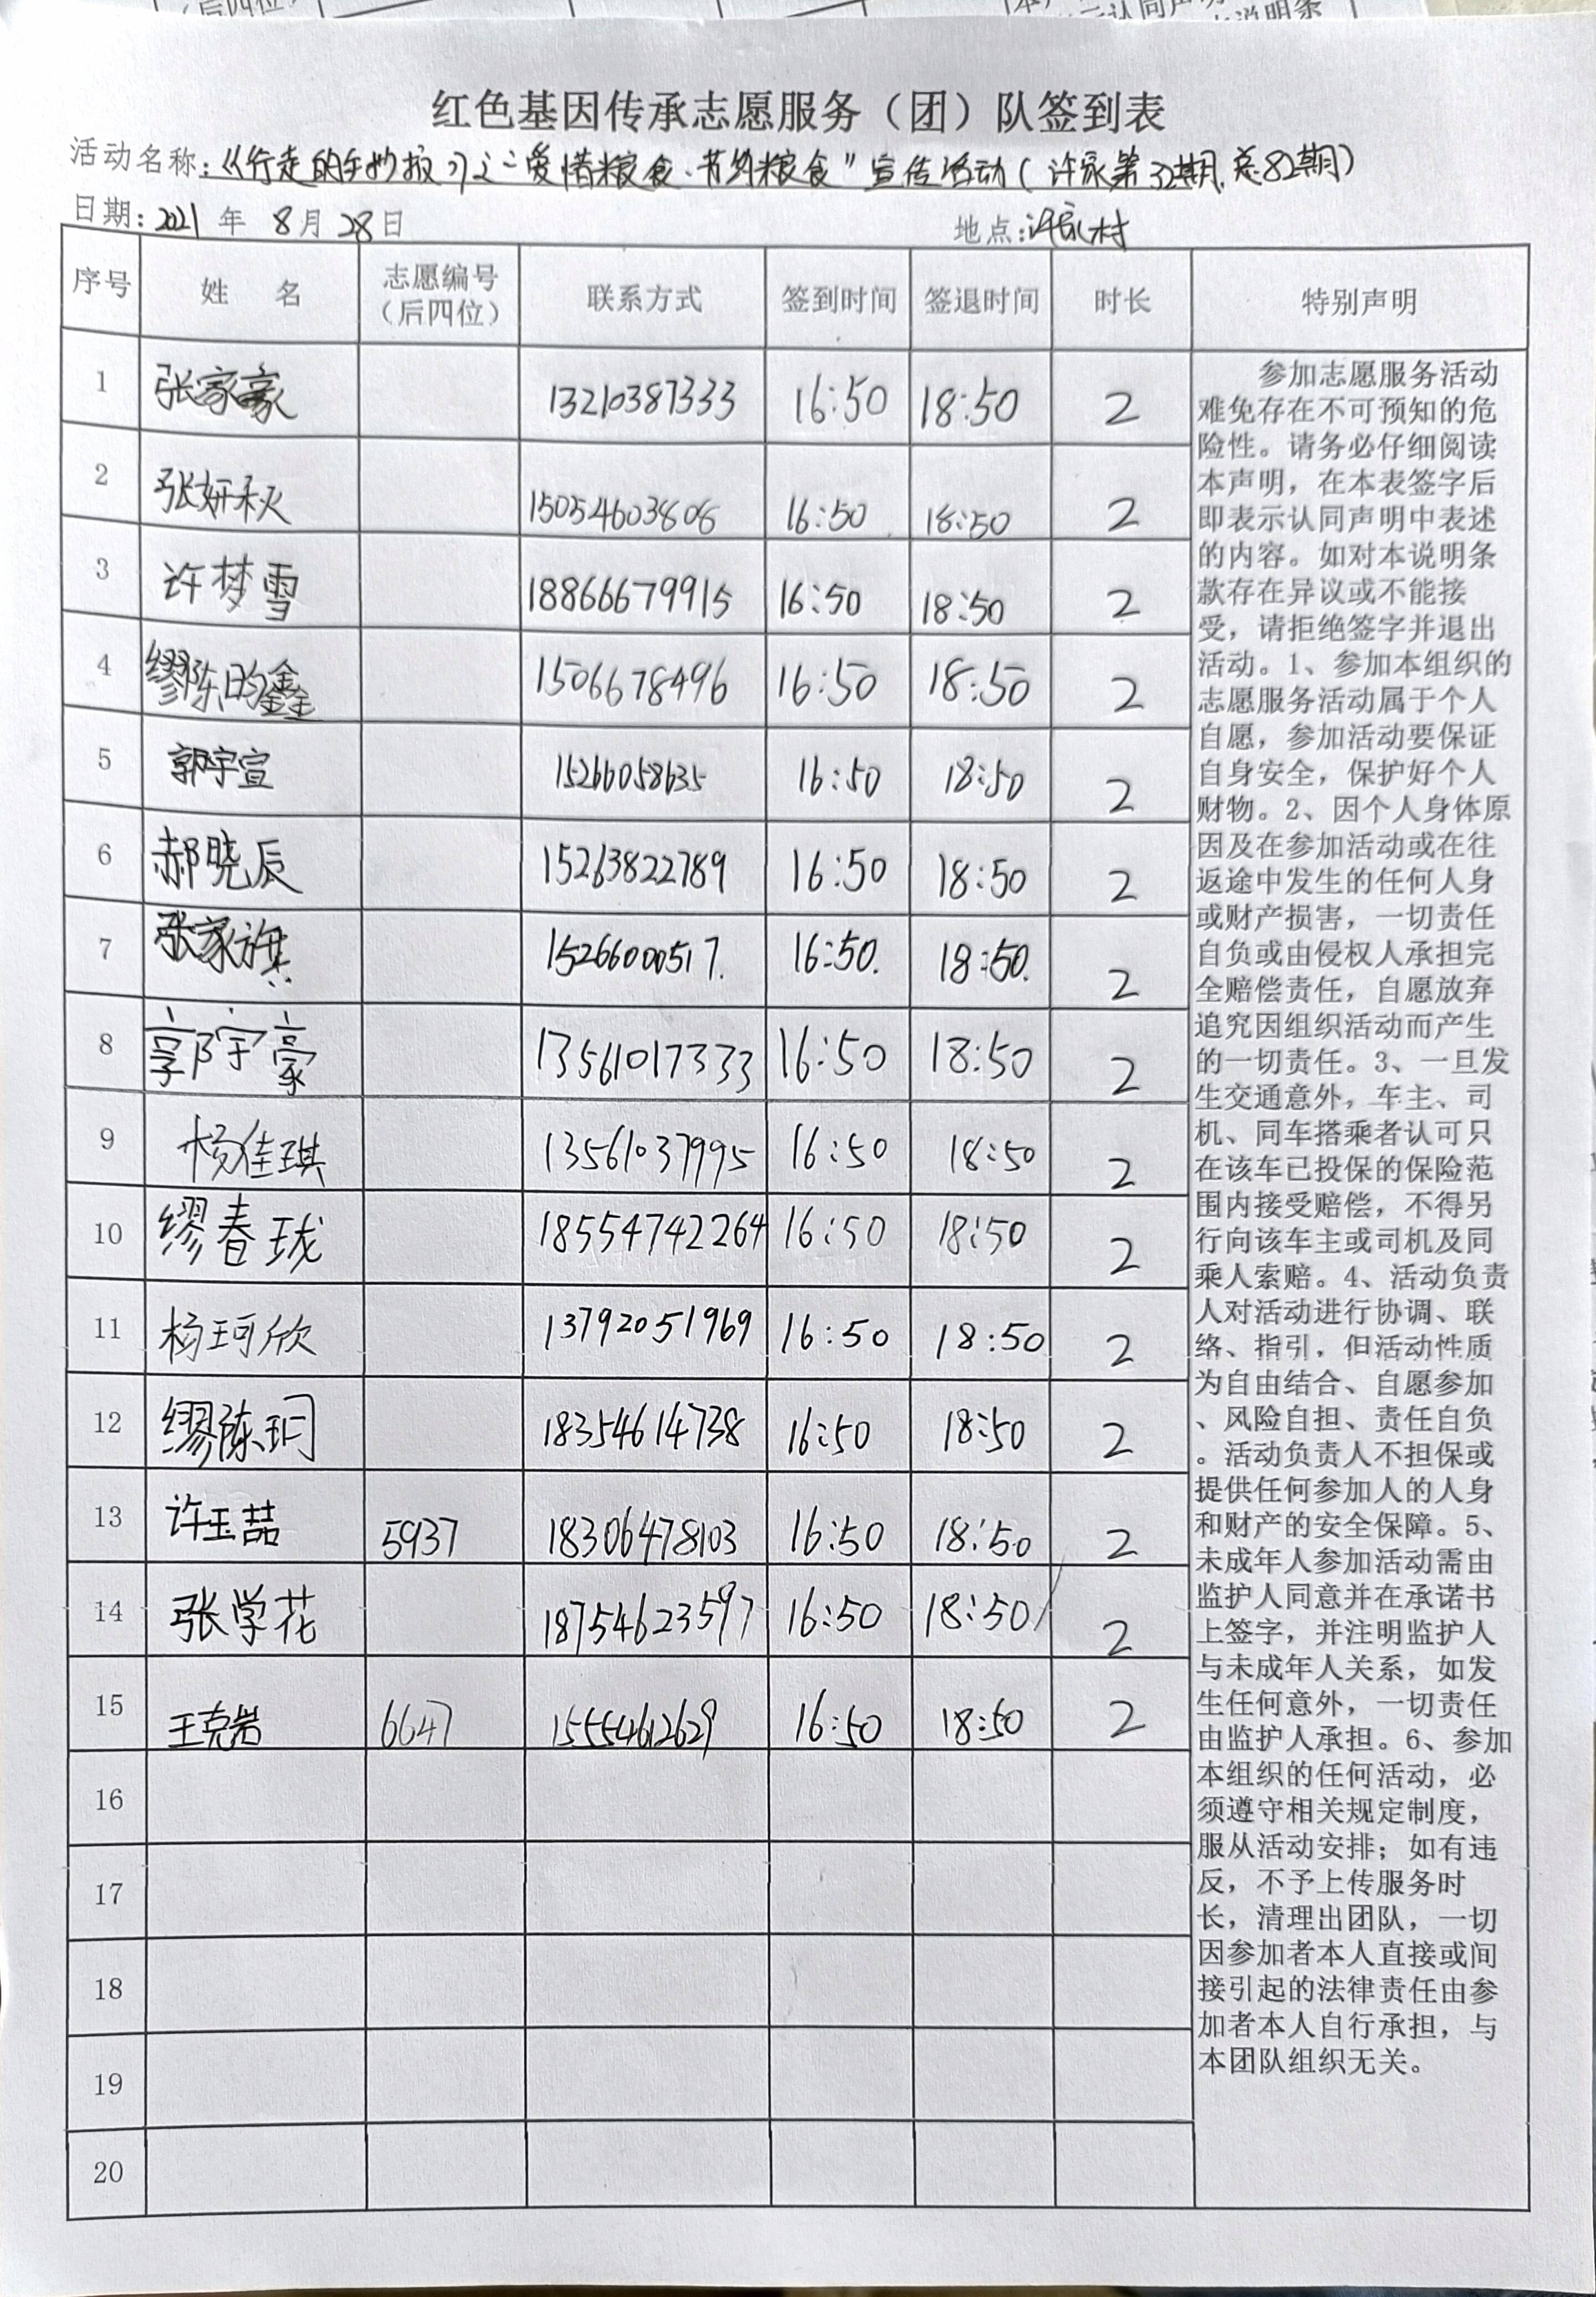 红色基因传承志愿服务（团）队签到表
活动名称：《行走的手抄报》之"爱惜粮食、节约粮食"宣传活动（许家第32期,总82期）
日期：2021年 8月28日 地点：许家村
序号 姓 名 志愿编号（后四位） 联系方式 签到时间 签退时间 时长 特别声明
1 张家豪 13210387333 16:50 18:50 2
2 张妍秋 15054603808 16:50 18:50 2
3 许梦雪 18866679915 16:50 18:50 2
4 缪陈昀鑫 1506678496 16:50 18:50 2
5 郭宇宣 15266058635 16:50 18:50 2
6 郝晓辰 15263822789 16:50 18:50 2
7 张家旗 15266000517. 16:50. 18:50. 2
8 郭宇豪 13561017333 16:50 18:50 2
9 杨佳琪 13561037995 16:50 18:50 2
10 缪春珑 18554742264 16:50 18:50 2
11 杨珂欣 13792051969 16:50 18:50 2
12 缪陈玥 18354614738 16:50 18:50 2
13 许玉喆 5937 18306478103 16:50 18:50 2
14 张学花 18754623597 16:50 18:50 2
15 王克岩 6647 15554612629 16:50 18:50 2
16
17
18
19
20
参加志愿服务活动
难免存在不可预知的危
险性。请务必仔细阅读
本声明，在本表签字后
即表示认同声明中表述
的内容。如对本说明条
款存在异议或不能接
受，请拒绝签字并退出
活动。1、参加本组织的
志愿服务活动属于个人
自愿，参加活动要保证
自身安全，保护好个人
财物。2、因个人身体原
因及在参加活动或在往
返途中发生的任何人身
或财产损害，一切责任
自负或由侵权人承担完
全赔偿责任，自愿放弃
追究因组织活动而产生
的一切责任。3、一旦发
生交通意外，车主、司
机、同车搭乘者认可只
在该车已投保的保险范
围内接受赔偿，不得另
行向该车主或司机及同
乘人索赔。4、活动负责
人对活动进行协调、联
络、指引，但活动性质
为自由结合、自愿参加
、风险自担、责任自负
。活动负责人不担保或
提供任何参加人的人身
和财产的安全保障。5、
未成年人参加活动需由
监护人同意并在承诺书
上签字，并注明监护人
与未成年人关系，如发
生任何意外，一切责任
由监护人承担。6、参加
本组织的任何活动，必
须遵守相关规定制度，
服从活动安排；如有违
反，不予上传服务时
长，清理出团队，一切
因参加者本人直接或间
接引起的法律责任由参
加者本人自行承担，与
本团队组织无关。